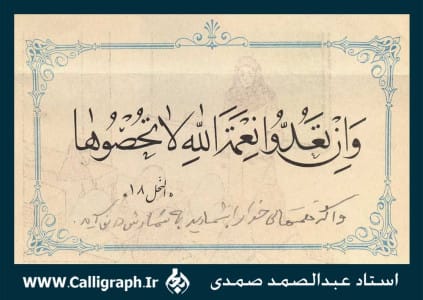 وَإِن تَعُدُّوا نِعْمَةَ اللهِ لَا تُحْصُوهَا
النحل ١٨
و اگر نعمتهای خدا را بشمارید به شمارش در نمی‌آید.
www.Calligraph.Ir
استاد عبدالصمد صمدی